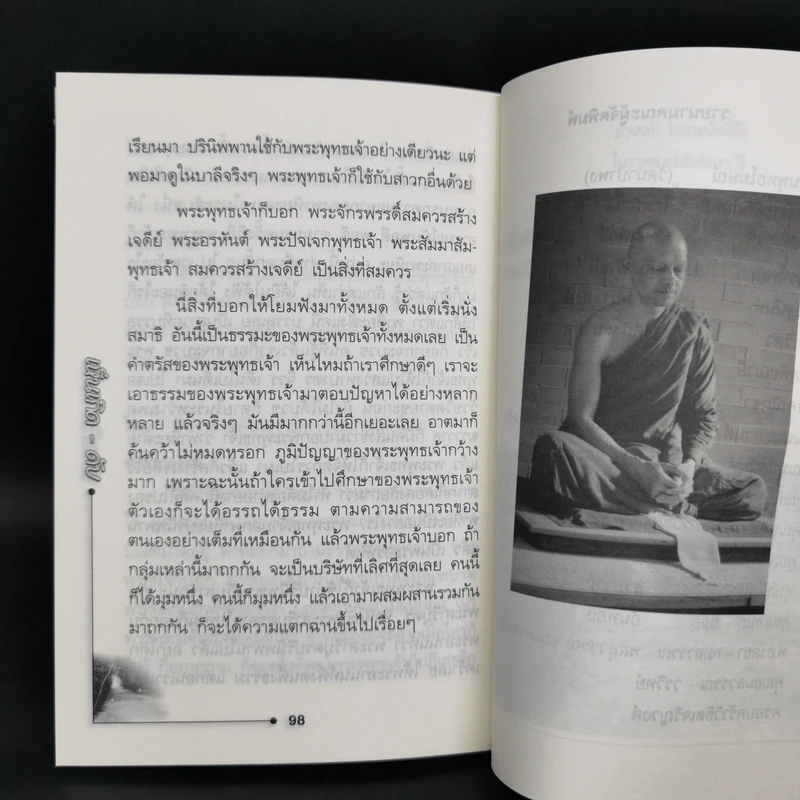 เรียนมา ปรินิพพานใช้กับพระพุทธเจ้าอย่างเดียวนะ แต่
พอมาดูในบาลีจริงๆ พระพุทธเจ้าก็ใช้กับสาวกอื่นด้วย
พระพุทธเจ้าก็บอก พระจักรพรรดิ์สมควรสร้าง
เจดีย์ พระอรหันต์ พระปัจเจกพุทธเจ้า พระสัมมาสัม-
พุทธเจ้า สมควรสร้างเจดีย์ เป็นสิ่งที่สมควร
นี่สิ่งที่บอกให้โยมฟังมาทั้งหมด ตั้งแต่เริ่มนั่ง
สมาธิ อันนี้เป็นธรรมะของพระพุทธเจ้าทั้งหมดเลย เป็น
คำตรัสของพระพุทธเจ้า เห็นไหมถ้าเราศึกษาดีๆ เราจะ
เอาธรรมของพระพุทธเจ้ามาตอบปัญหาได้อย่างหลาก
หลาย แล้วจริงๆ มันมีมากกว่านี้อีกเยอะเลย อาตมาก็
ค้นคว้าไม่หมดหรอก ภูมิปัญญาของพระพุทธเจ้ากว้าง
มาก เพราะฉะนั้นถ้าใครเข้าไปศึกษาของพระพุทธเจ้า
ตัวเองก็จะได้อรรถได้ธรรม ตามความสามารถของ
ตนเองอย่างเต็มที่เหมือนกัน แล้วพระพุทธเจ้าบอก ถ้า
กลุ่มเหล่านี้มาถกกัน จะเป็นบริษัทที่เลิศที่สุดเลย คนนี้
ก็ได้มุมหนึ่ง คนนี้ก็มุมหนึ่ง แล้วเอามาผสมผสานรวมกัน
มาถกกัน ก็จะได้ความแตกฉานขึ้นไปเรื่อยๆ
เห็นเกิด - ดับ
98